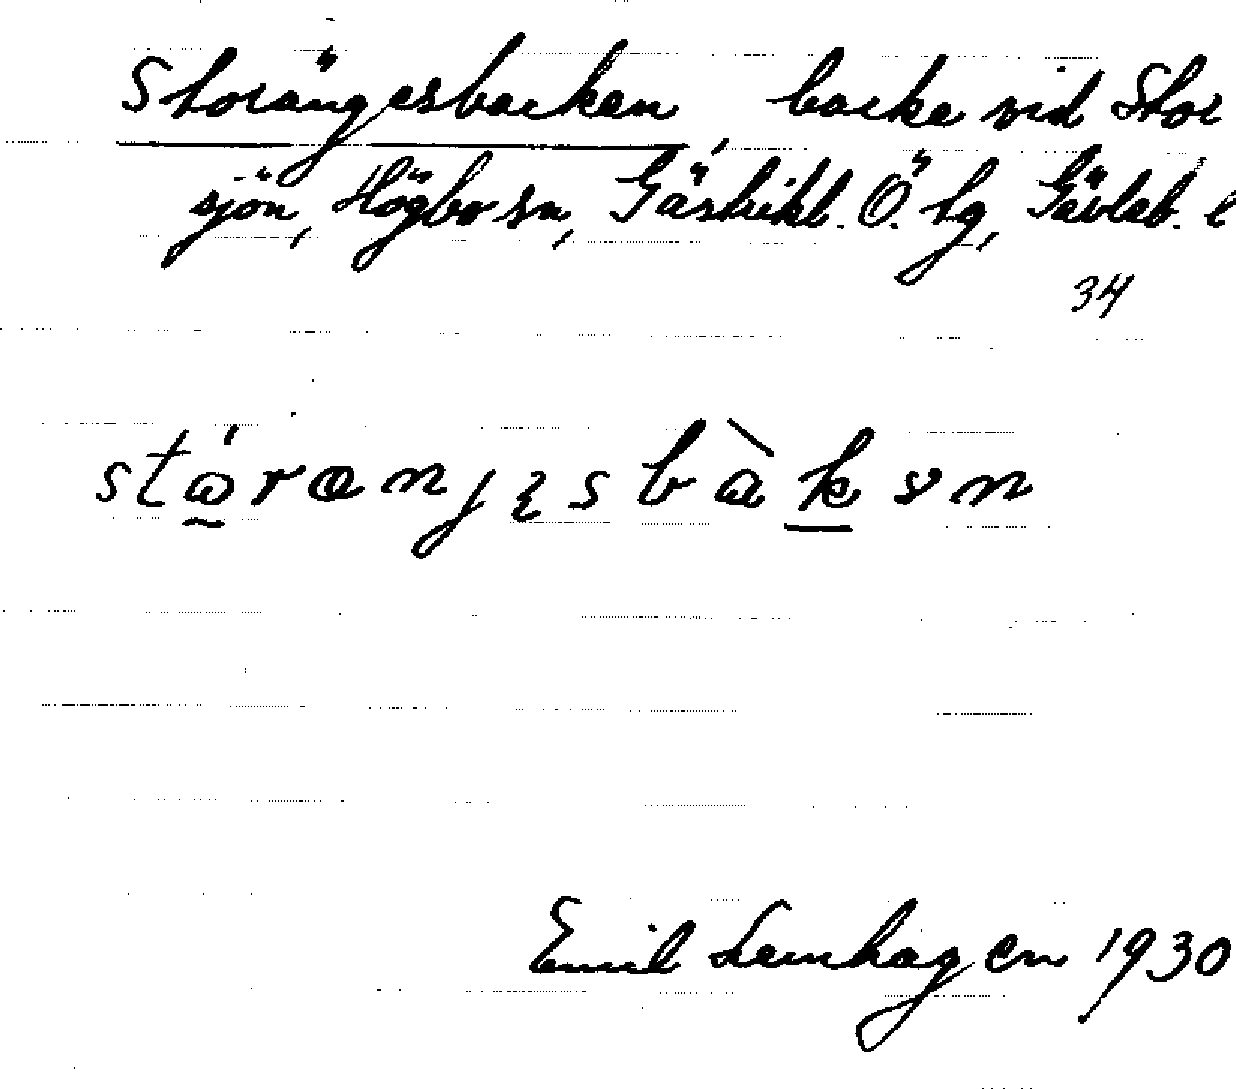 Storängesbacken, backe vid Stor
sjön, Högbo sn, Gästrikl. Ö. tg, Gävleb. l
34
stɷ́rɑnjɛsbàkɤn
Emil Lemhagen 1930